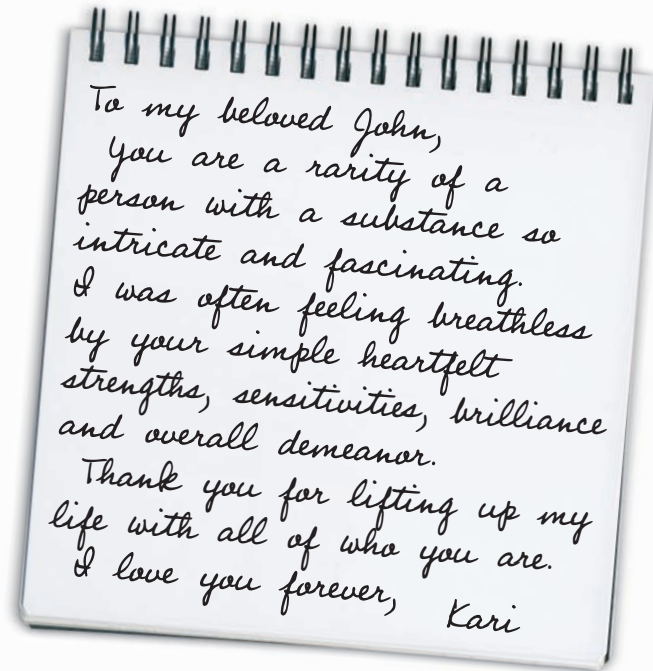 To my beloved John,
You are a rarity of a
person with a substance so
intricate and fascinating.
I was often feeling breathless
by your simple heartfelt
strengths, sensitivities, brilliance
and overall demeanor.
Thank you for lifting up my
life with all of who you are.
I love you forever, Kari